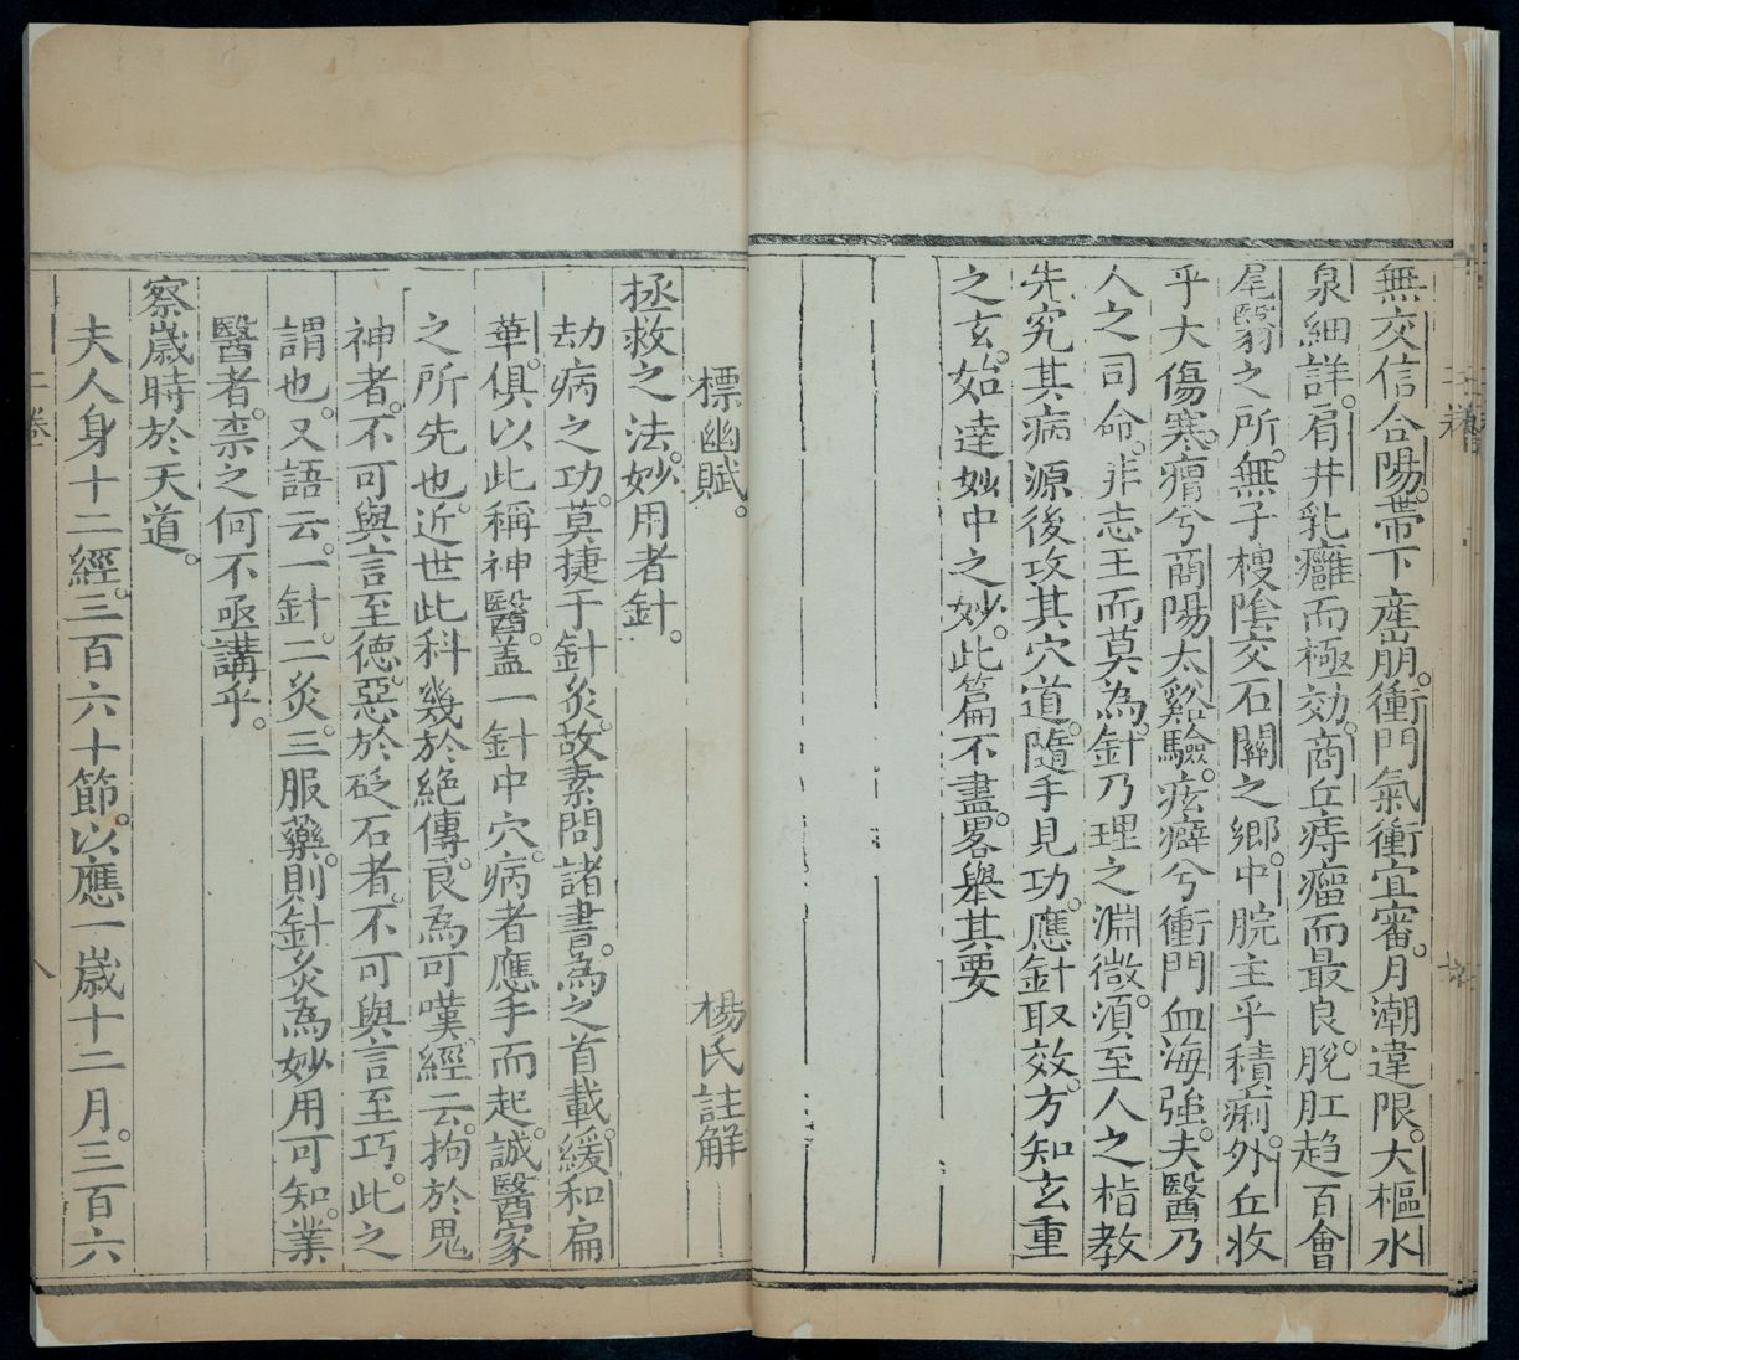 無交信合陽。帶下產崩。衝門氣衝宜審。月潮違限。大樞水
泉細詳。肩井乳癰而極効。商丘痔瘤而最良。脫肛趋百會
尾翳之所。無子搜陰交石關之鄉。中脘主乎積痢。外丘收
乎大傷寒。瘠兮商陽太谿驗。痃癖兮衝門血海強。夫醫乃
人之司命。非志士而莫為。針乃理之淵微。須至人之栺教
先究其病源後攻其穴道。隨手見功。應針取效。方知玄重
之玄。始達妙中之妙。此篇不盡。畧舉其要
標幽賦。 楊氏註解
拯救之法。妙用者針。
劫病之功。莫捷于針灸。故素問諸書。為之首載。緩和扁
華。俱以此稱神醫。盖一針中穴。病者應手而起。誠醫家
之所先也。近世此科幾於絶傳。良為可嘆。經云。拘於鬼
神者。不可與言至德。惡於砭石者。不可與言至巧。此之
謂也。又語云。一針。二灸。三服藥。則針灸為妙用可知。業
醫者。柰之何不亟講乎。
察歲時於天道。
夫人身十二經。三百六十節。以應一歲十二月。三百六
二卷
八